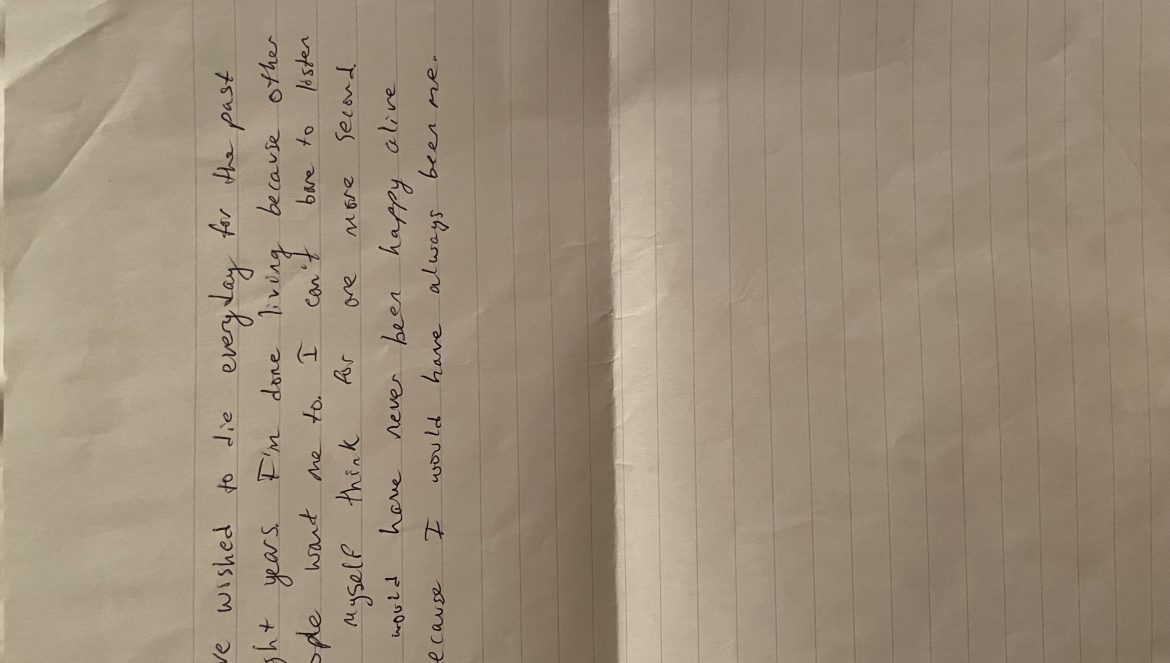 ve wished to die everyday for the past
ght years. I'm done living because other
ople want me to. I can't bare to listen
myself think for one more second.
would have never been happy alive
ecause I would have always been me.